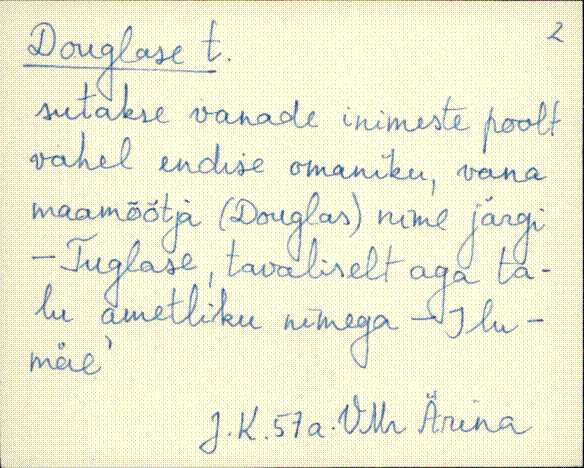 2
Douglase t.
sutakse vanade inimeste poolt
vahel endise omaniku, vana
maamõõtja (Douglas) nime järgi
– Tuglase, tavaliselt aga ta-
lu ametliku nimega – Ilu-
mäe'
J.K. 57a. VMr Ärina